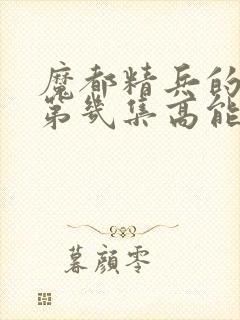 魔都精兵的
第几集高能
暮颜零